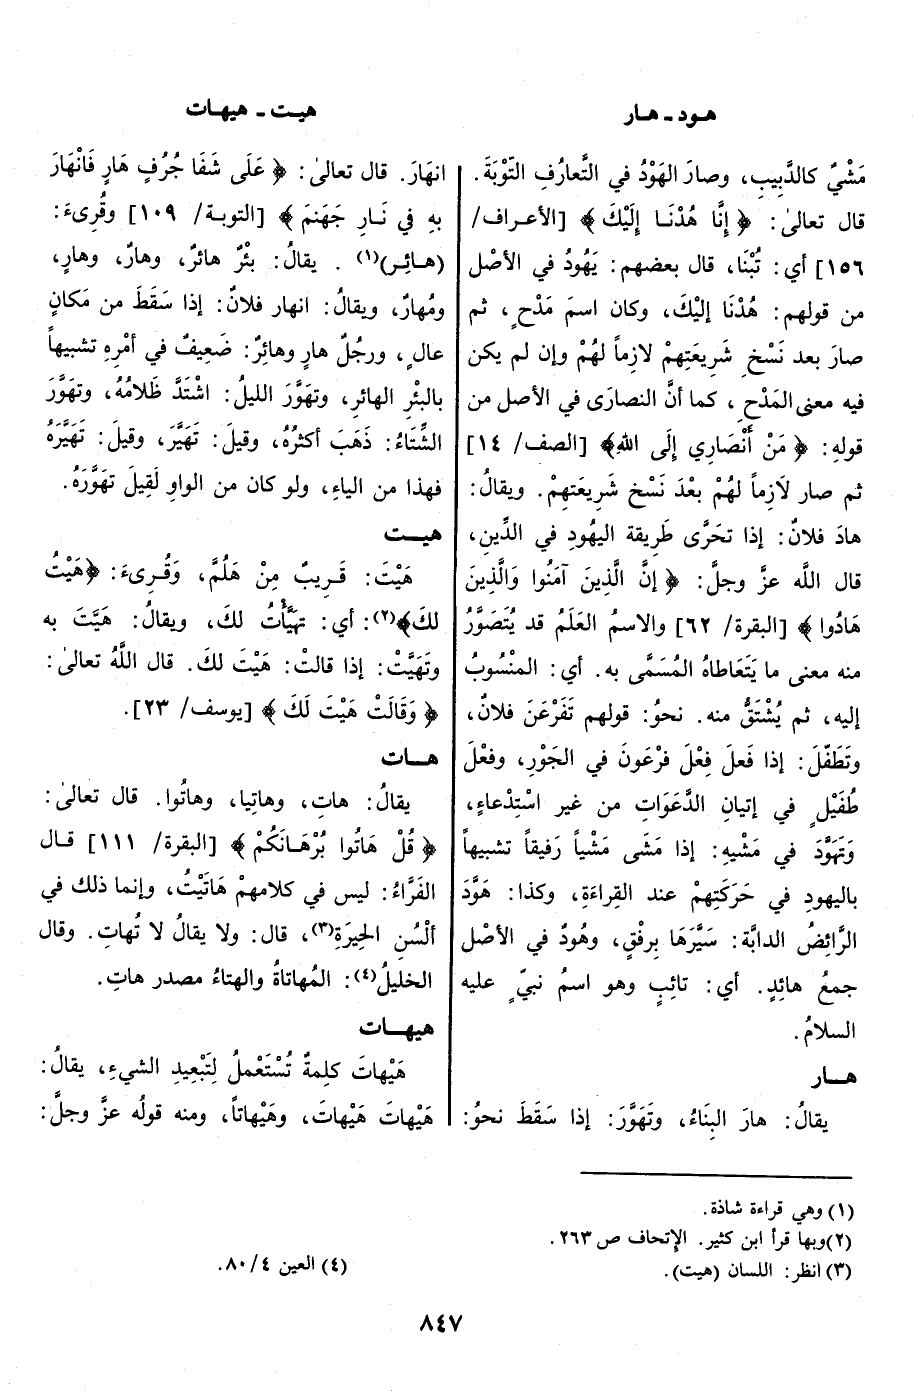 هـود ـ هـار
هيـت ـ هيهـات
مَشْيٌ كالدَّبِيبِ، وصارَ الهَوْدُ في التَّعارُفِ التّوْبَةَ.
قال تعالىٰ: ﴿ إِنَّا هُدْنَـا إِلَيْكَ ﴾ [الأعراف/
١٥٦] أي: تُبْنَا، قال بعضهم: يَهُودُ في الأصْل
من قولهم: هُدْنَا إليْكَ، وكان اسمَ مَدْحٍ، ثم
صارَ بعد نَسْخِ شَرِيعَتِهِمْ لازِماً لهُمْ وإن لم يكن
فيه معنى المَدْحِ، كما أنَّ النصارَى في الأصل من
قولهِ: ﴿ مَنْ أَنْصَارِي إِلَى اللهِ﴾ [الصف/ ١٤]
ثم صار لَازِماً لهمْ بعْدَ نَسْخِ شَرِيعَتِهِمْ. ويقالُ:
هادَ فلانٌ: إذا تحَرَّى طَرِيقة اليهُودِ في الدِّينِ،
قال اللَّه عزَّ وجلَّ: ﴿ إنَّ الَّذِينَ آمَنُوا وَالَّذِينَ
هَادُوا ﴾ [البقرة/ ٦٢] والاسمُ العَلَمُ قد يُتَصَوَّرُ
منه معنى ما يَتَعَاطاهُ المُسَمَّى به. أي: المنْسُوبُ
إليه، ثم يُشْتَقُّ منه. نحوُ: قولهم تَفَرْعَنَ فلانٌ،
وتَطَفَّلَ: إذا فَعلَ فِعْلَ فرْعَونَ في الجَوْرِ، وفعْلَ
طُفَيْلٍ في إتيانِ الدَّعَوَاتِ من غير اسْتِدْعاءٍ،
وَتَهَوَّدَ في مَشْيِهِ: إذا مَشَى مَشْياً رَفيقاً تشبيهاً
باليهودِ في حَرَكَتِهِمْ عند القِراءَةِ، وكذا: هَوَّدَ
الرَّائِضُ الدابَّة: سَيَّرَهَا بِرِفْقٍ، وهُودٌ في الأصْل
جمعُ هائِدٍ. أي: تائِبٍ وهو اسمُ نبيٍّ عليه
السلامُ.
هـار
يقالُ: هارَ البِنَاءُ، وتَهَوَّرَ: إذا سَقَطَ نحوُ:
انهَارَ. قال تعالىٰ: ﴿ عَلَى شَفَا جُرُفٍ هَارٍ فَانْهَارَ
بِهِ فِي نَـارِ جَهَنمَ ﴾ [التوبـة/ ١٠٩] وقُرِىءَ:
(هـائِـرٍ)(١) . يقالُ: بئْرٌ هائرٌ، وهارٌ، وهارٍ،
ومُهارٌ، ويقالُ: انهار فلانٌ: إذا سَقَطَ من مَكانٍ
عالٍ، ورجُلٌ هارٍ وهائِرٌ: ضَعِيفٌ في أمْرِهِ تشبيهاً
بالبئْرِ الهائرِ، وتهَوَّرَ الليلُ: اشْتَدَّ ظَلامُهُ، وتهَوَّرَ
الشِّتَاءُ: ذَهَبَ أكثرُهُ، وقيلَ: تَهَيَّرَ، وقيلَ: تَهَيَّرَهُ
فهذا من الياءِ، ولو كان من الواوِ لَقِيلَ تهَوَّرَهُ.
هيـت
هَيْتَ: قَـرِيبٌ مِنْ هَلُمَّ، وَقُـرِىءَ: ﴿هَيْتُ
لكَ﴾(٢): أي: تهَيَّأْتُ لكَ، ويقالُ: هَيَّتَ به
وتَهَيَّتْ: إذا قالتْ: هَيْتَ لكَ. قال اللَّهُ تعالىٰ:
﴿ وَقَالَتْ هَيْتَ لَكَ ﴾ [يوسف/ ٢٣].
هـات
يقالُ: هاتِ، وهاتِيا، وهاتُوا. قال تعالىٰ:
﴿ قُلْ هَاتُوا بُرْهَـانَكُمْ ﴾ [البقرة/ ١١١] قـال
الفَرَّاءُ: ليس في كلامهِمْ هَاتَيْتُ، وإنما ذلك في
ألْسُنِ الحِيرَةِ(٣)، قال: ولا يقالُ لا تُهاتِ. وقال
الخليلُ(٤): المُهاتاةُ والهتاءُ مصدر هاتِ.
هيهـات
هَيْهاتَ كلِمةٌ تُسْتَعْملُ لِتَبْعِيدِ الشيءِ، يقالُ:
هَيْهاتَ هَيْهاتَ، وهَيْهاتاً، ومنه قولُه عزَّ وجلَّ:
(١) وهي قراءة شاذة.
(٢)وبها قرأ ابن كثير. الإتحاف ص ٢٦٣.
(٣) انظر: اللسان (هيت).
(٤) العين ٤/ ٨٠.
٨٤٧